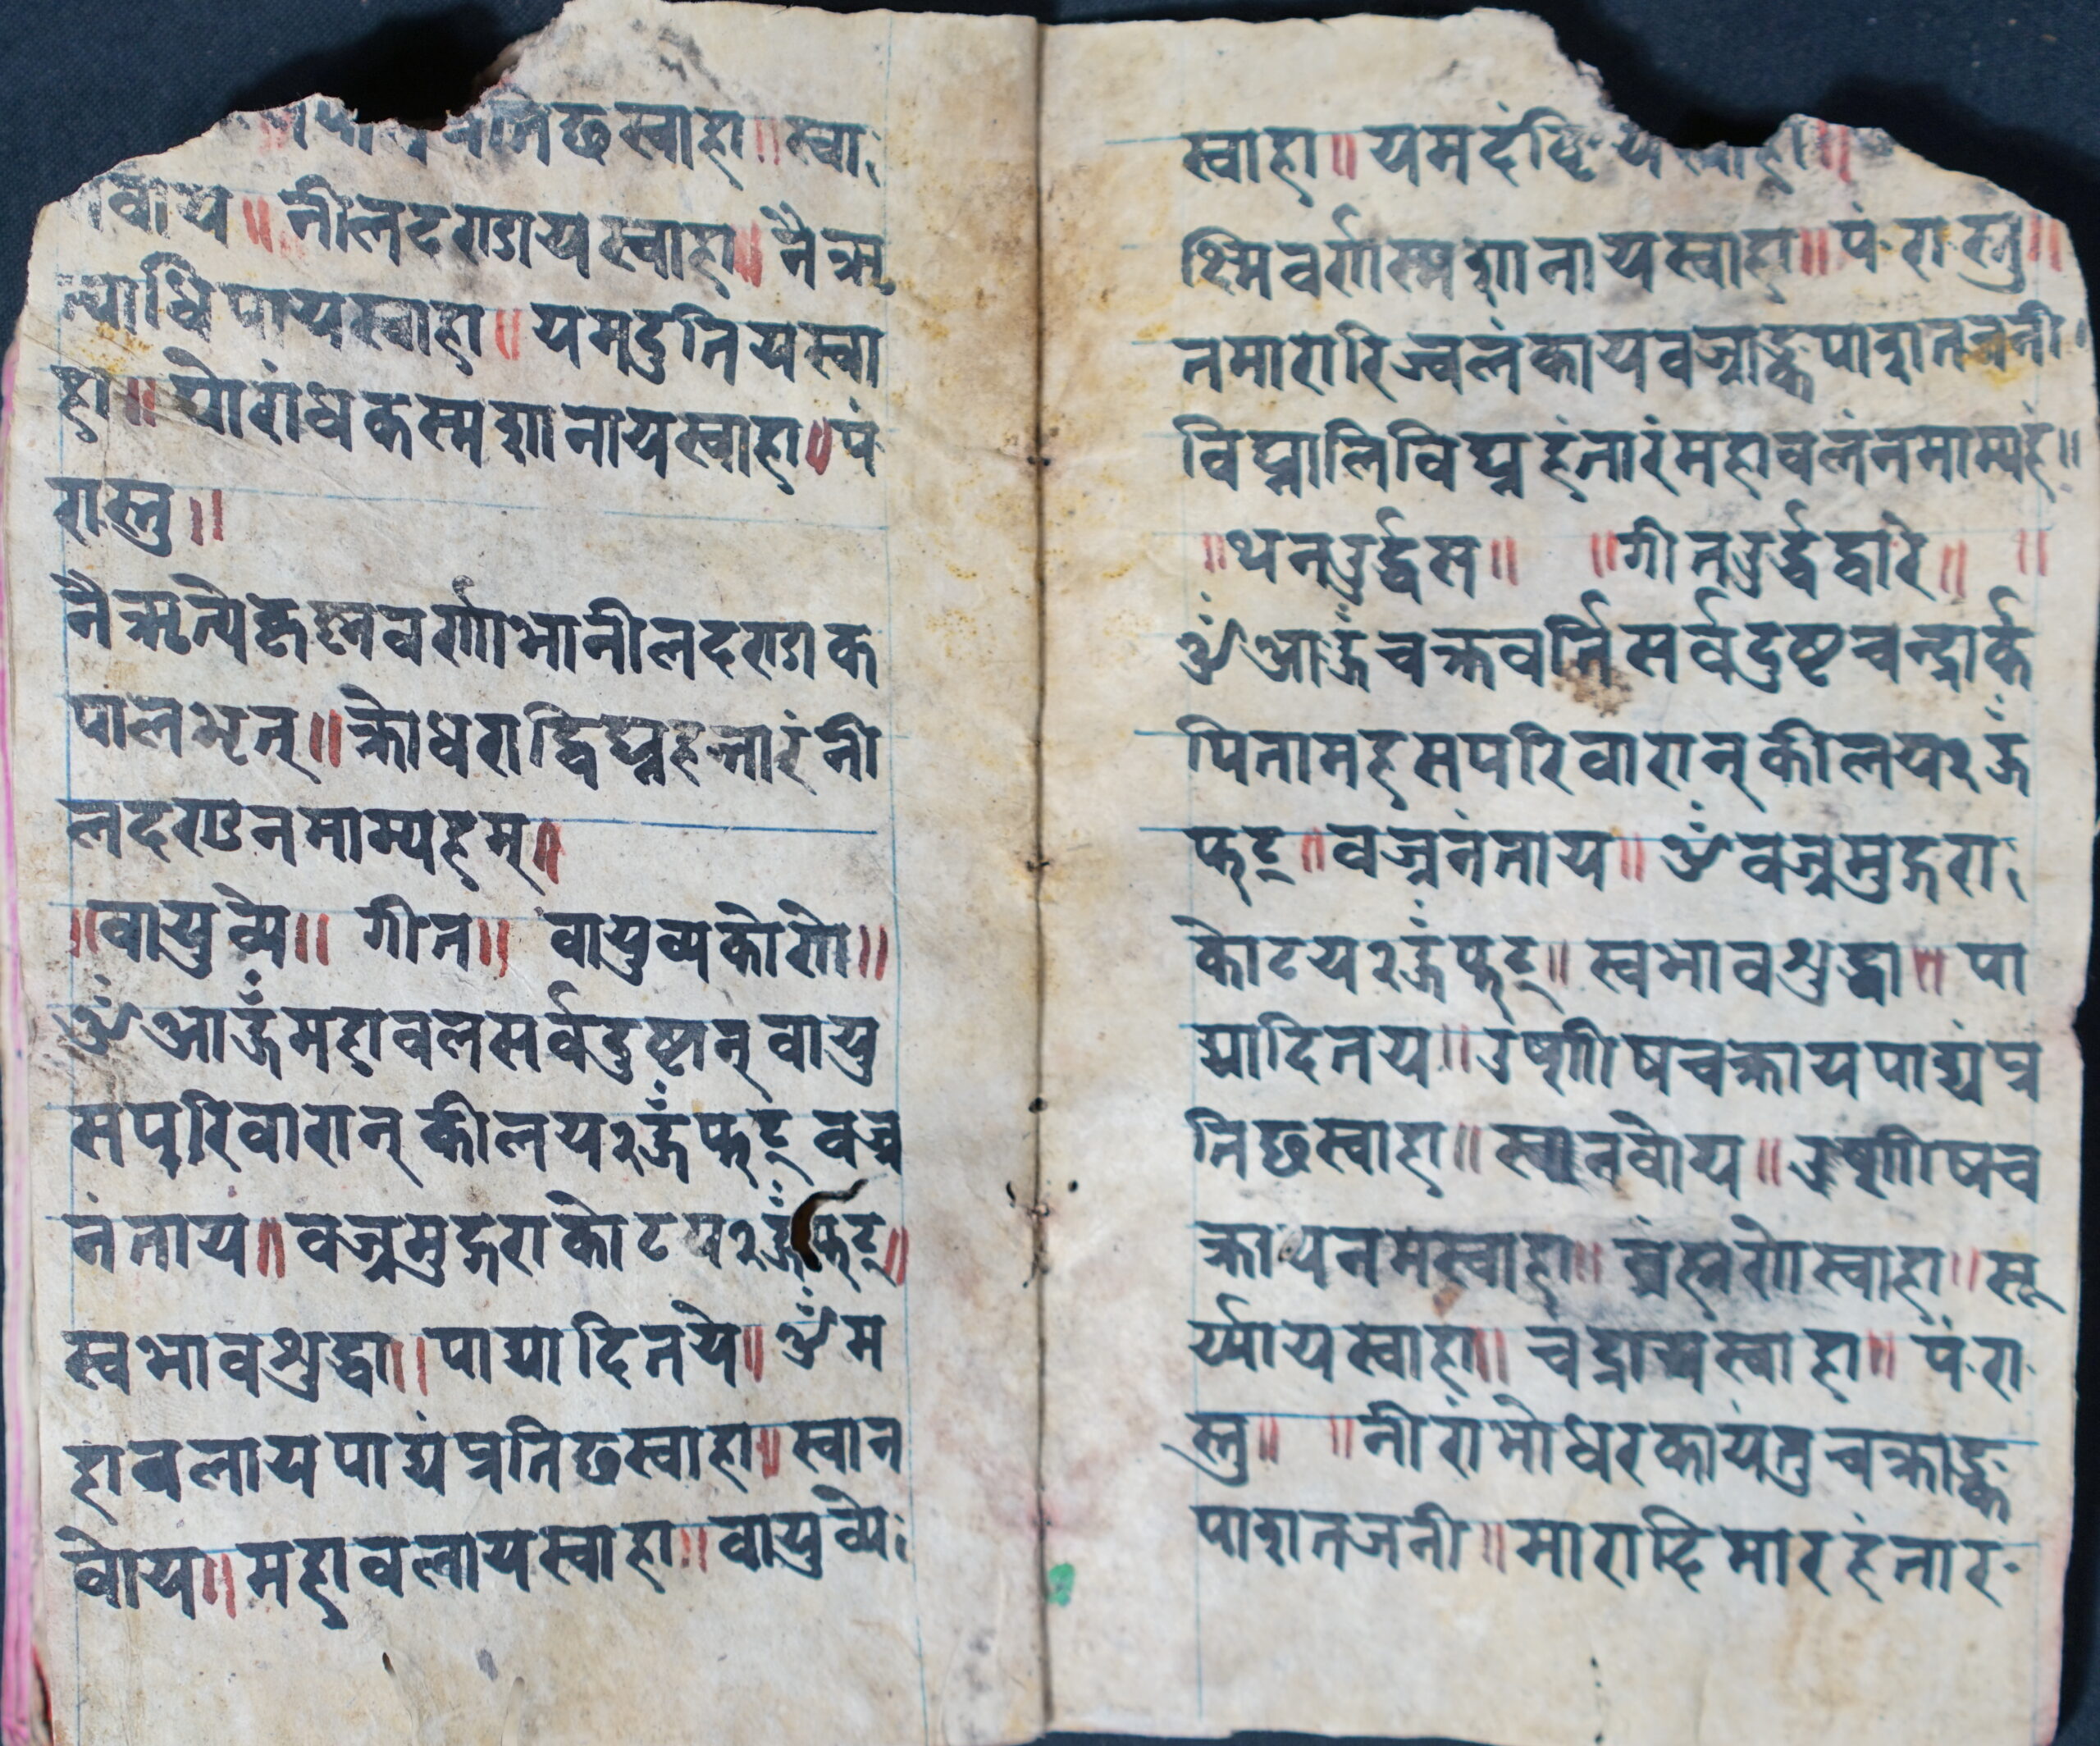 तिछस्वाहा॥ स्वा
वोय॥ नीलदण्डायस्वाहा॥ नैऋ
त्याधिपायस्वाहा॥ यमदुतियस्वा
हा॥ घोरांधकस्मशानायस्वाहा॥ पं
रास्तु॥
नैऋत्येकृष्नवर्णाभानीलदण्डक
पालभृत्॥ क्रोधराद्विघ्नहन्तारंनी
लदण्डनमाम्यहम्॥
॥वायुव्ये॥ गीत॥ वायुव्यकोणे॥
ॐआःहूँमहावलसर्वदुष्टान्वायु
सपरिवारान् कीलय२हूँफट् वज्र
नंताय॥ वज्रमुद्गराकोटय२हूँफट्॥
स्वभावशुद्धा॥ पाद्यादितये॥ ॐम
हावलायपाद्यंप्रतिछस्वाहा॥ स्वान
वोय॥ महावलायस्वाहा॥ वायुव्ये
स्वाहा॥ यमदंष्ट्रियस्वाहा॥
क्ष्मिवर्णस्मशानायस्वाहा॥ पं·रा·स्तु॥
तमारारिज्वलंकायवज्राङ्कुपाशतर्जनी
विघ्नालिविघ्नहंतारंमहावलंनमाम्यहं॥
॥थनउर्द्धस॥ ॥गीतउर्द्धद्वारे॥ ॥
ॐआःहूँचक्रवर्तिसर्वदुष्टचन्द्रार्क
पितामहसपरिवारान् कीलय२हूँ
फट्॥ वज्रनंताय॥ ॐवज्रमुद्गरा
कोटय२हूँफट्॥ स्वभावशुद्धा॥ पा
द्यादितय॥ उष्णीषचक्रायपाद्यंप्र
तिछस्वाहा॥ स्वानवोय॥ उष्णीषच
क्रायनमस्वाहा॥ व्रंह्मणेस्वाहा॥ सू
र्य्यायस्वाहा॥ चंद्रायस्वाहा॥ पं·रा
स्तु॥ ॥नीरांभोधरकायंतुचक्राङ्कु
पाशतर्जनी॥ मारादिमारहंतारं